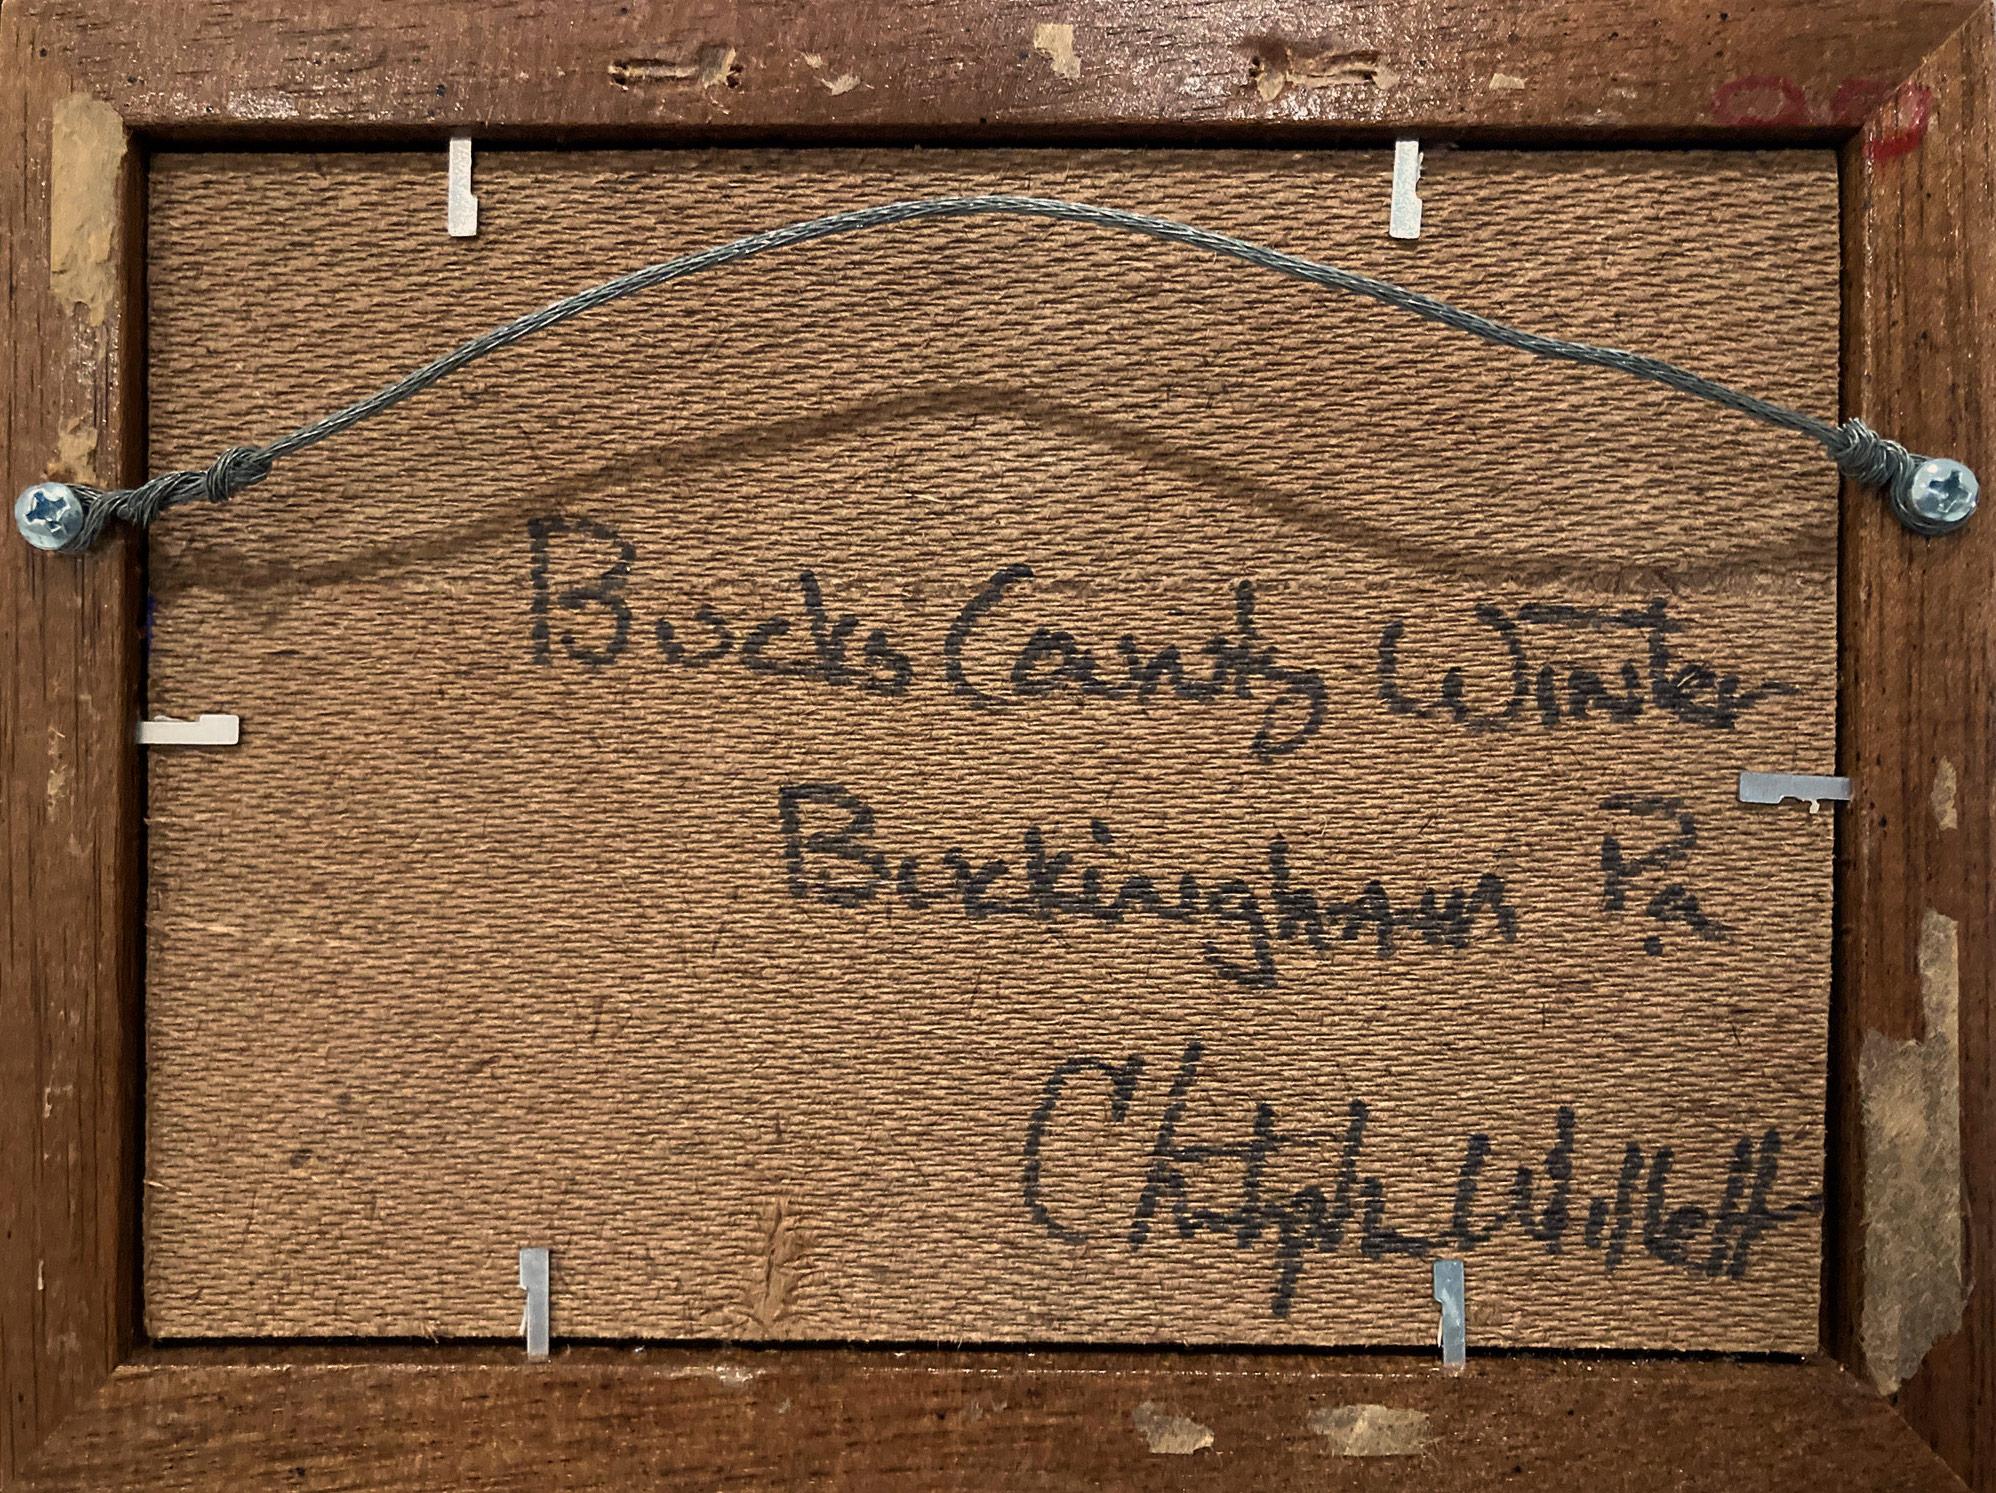 Bucks County Winter
Buckingham Pa.
Christoph Willett